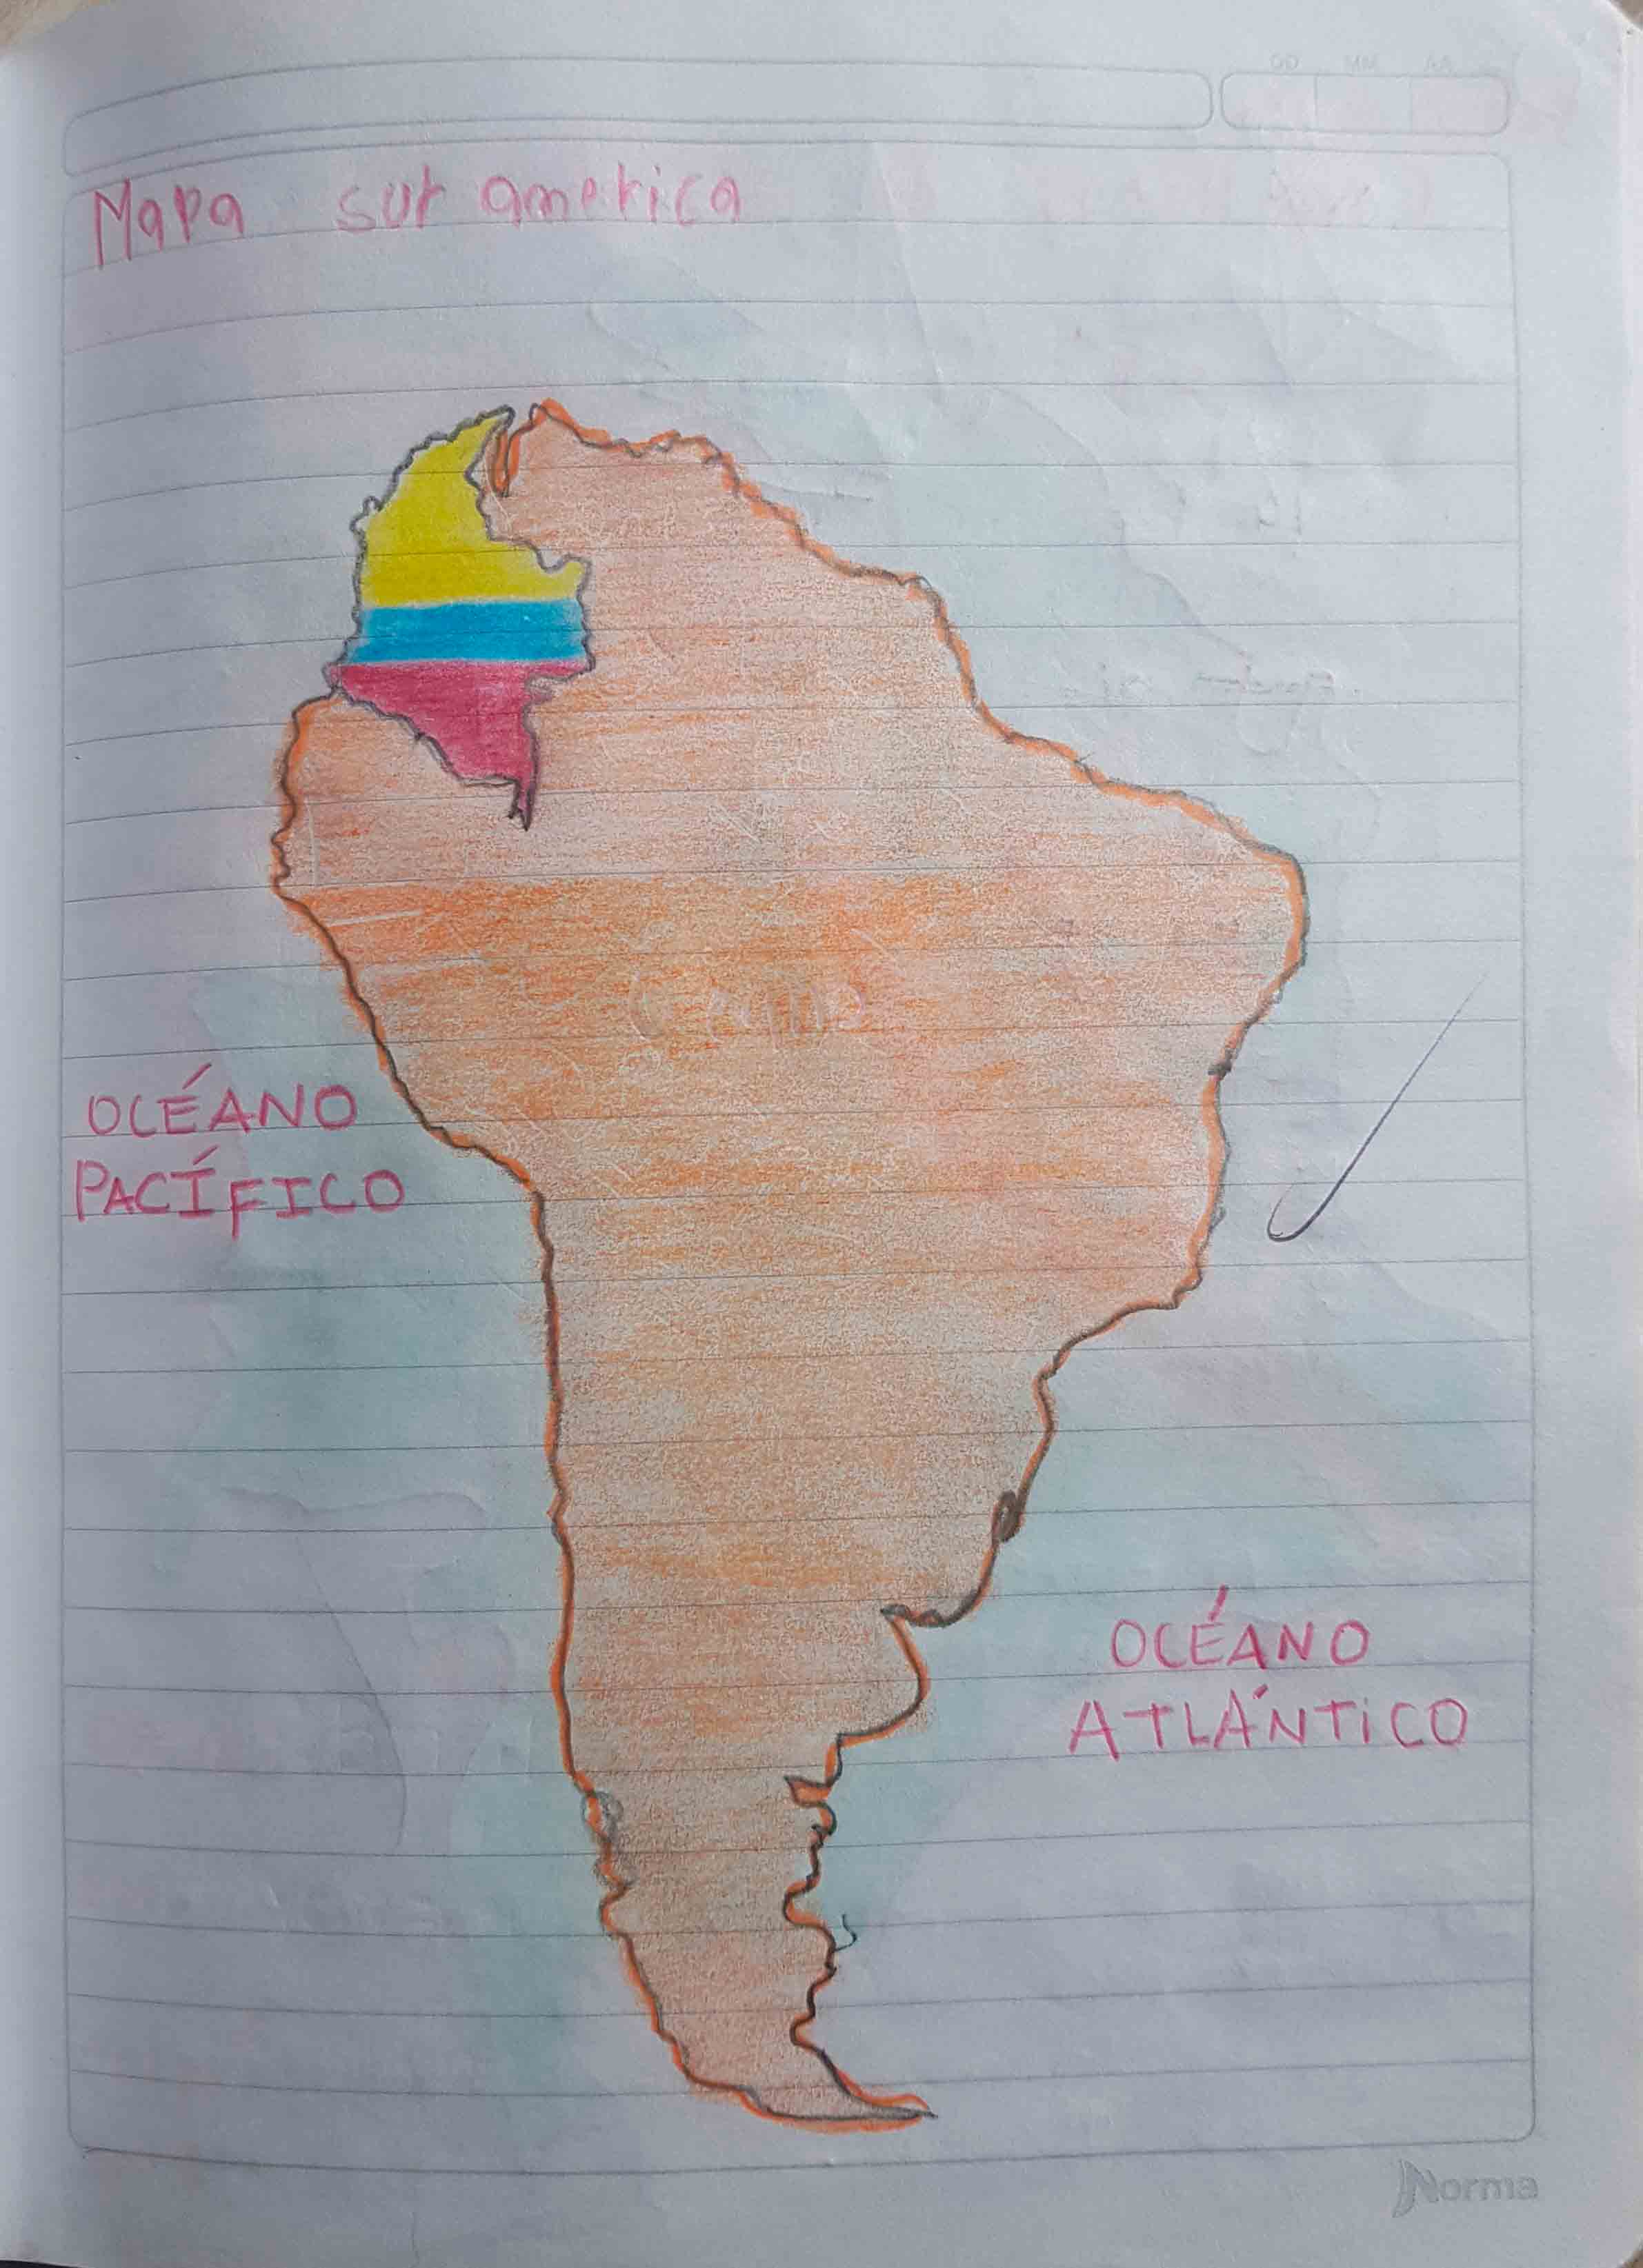 DD MM AA
Mapa sur america
OCÉANO
PACÍFICO
OCÉANO
ATLÁNTiCO
Norma